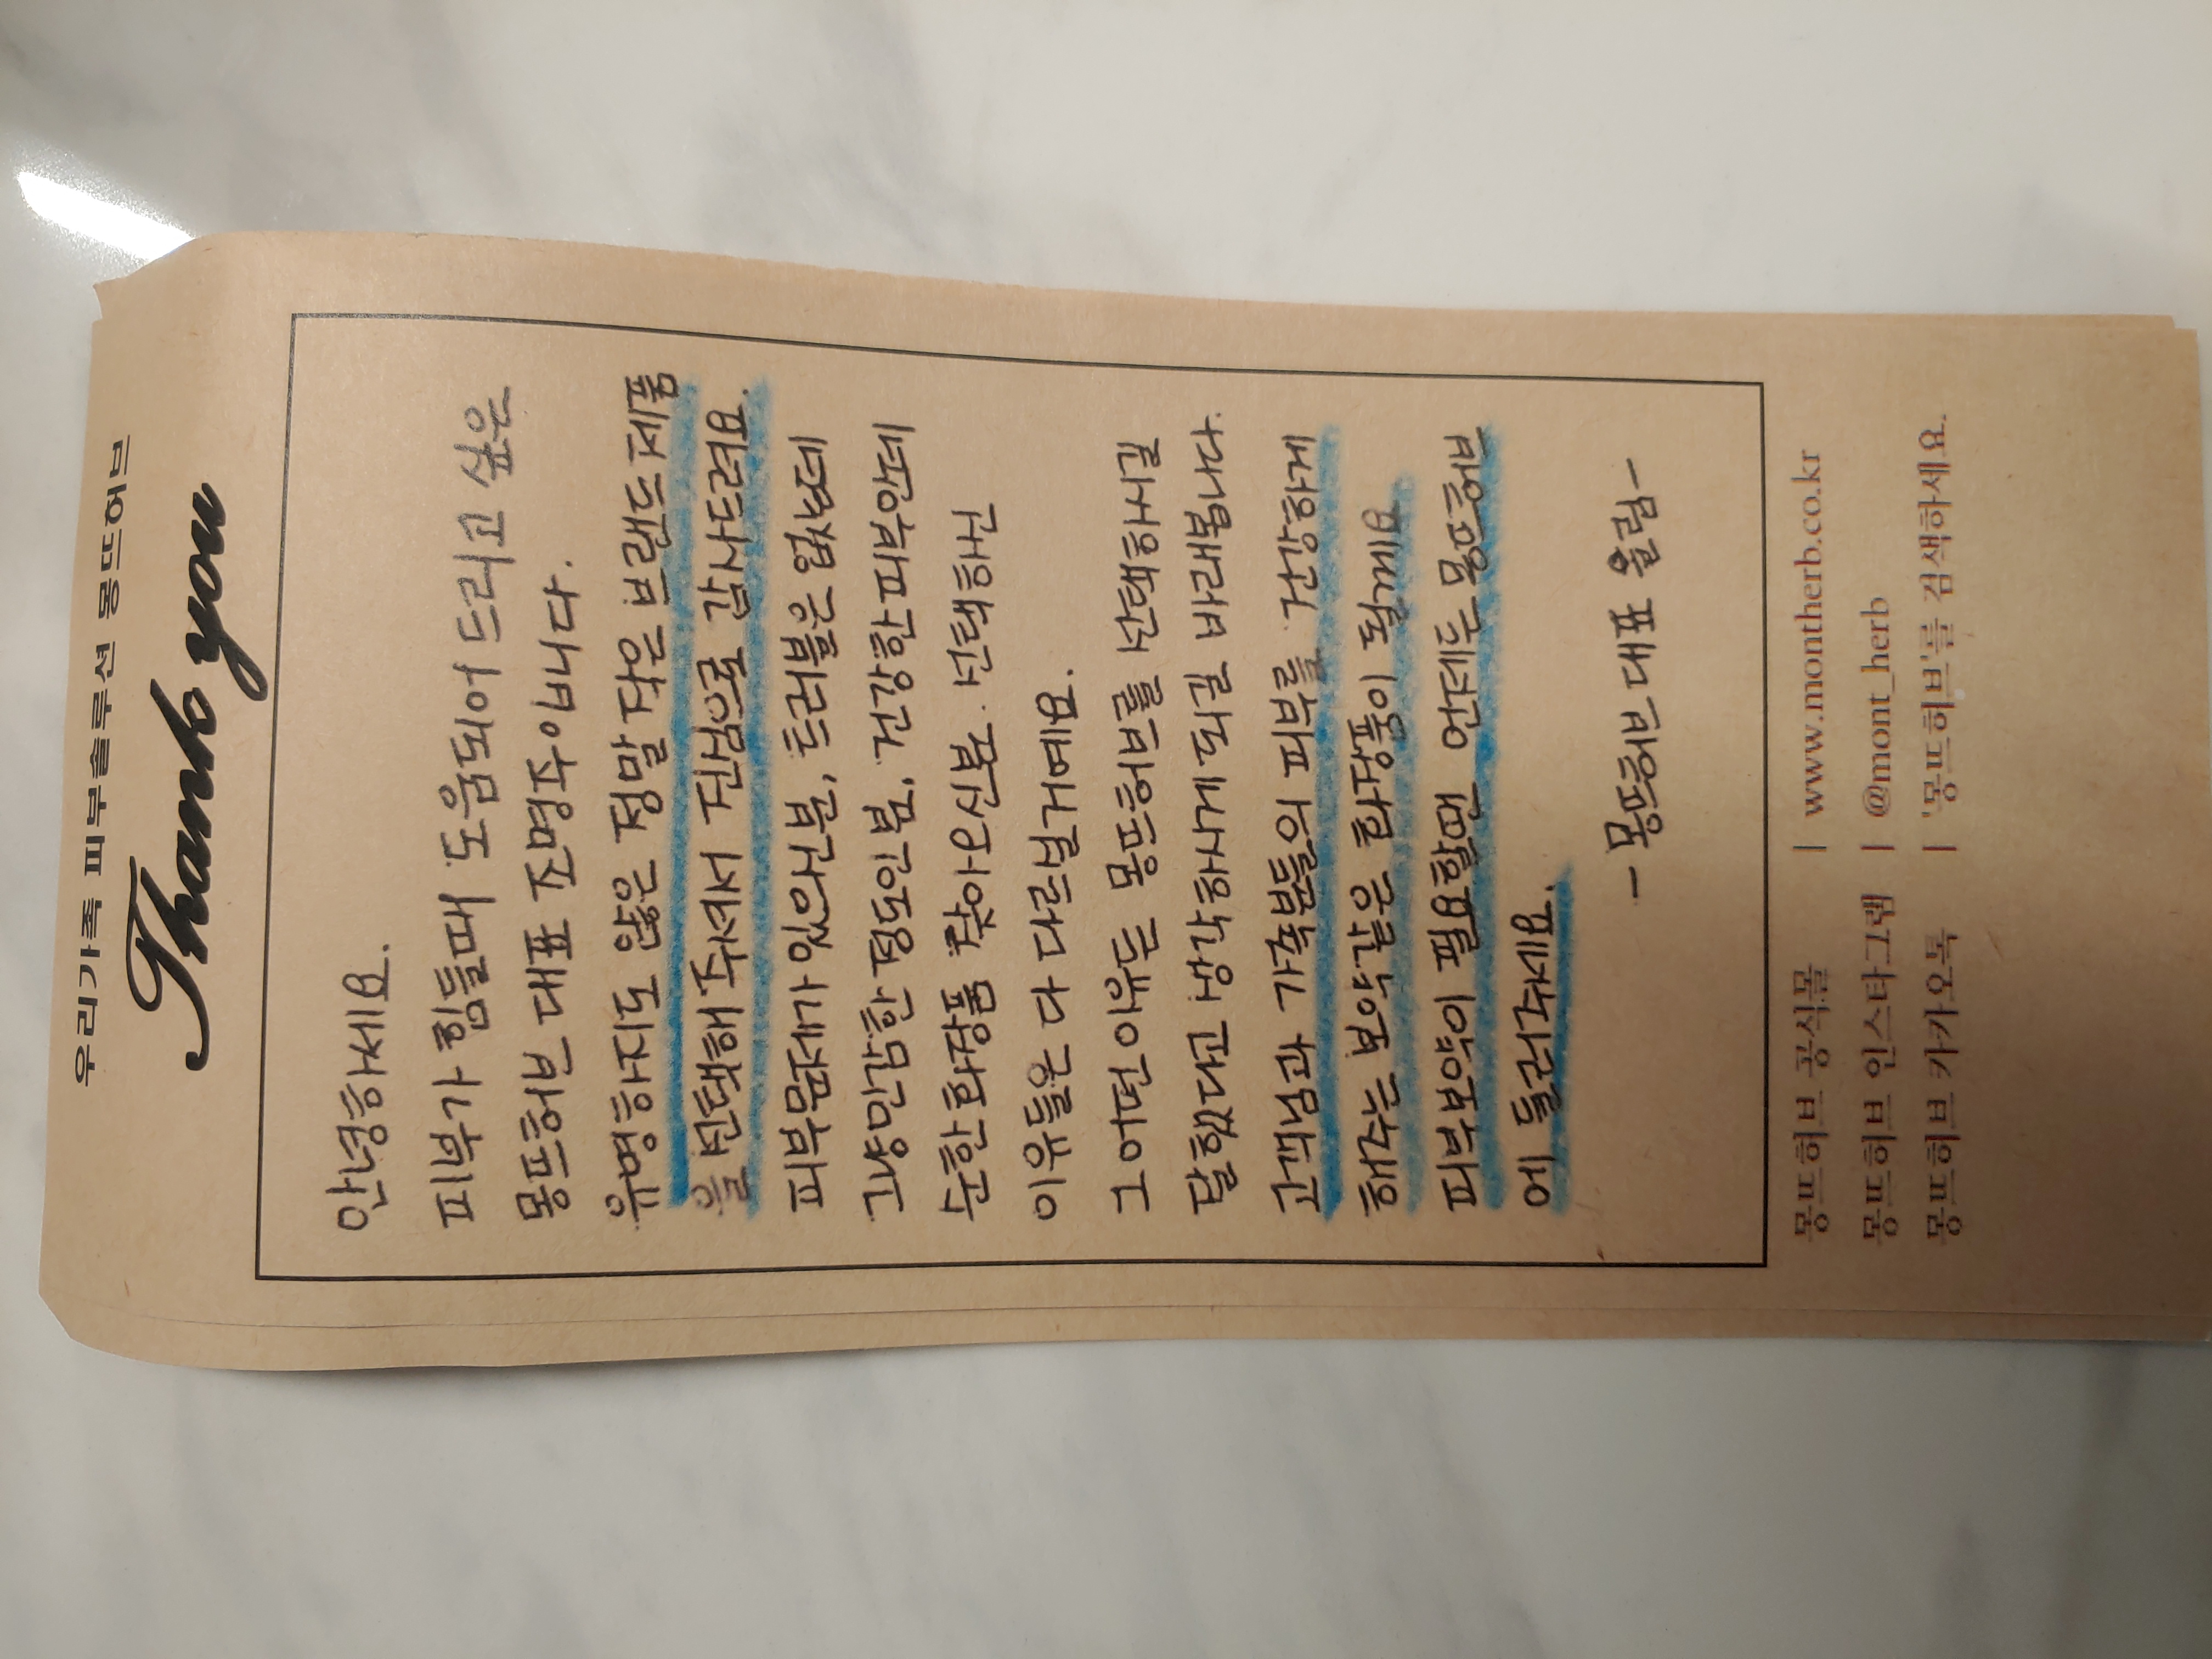 우리가족 피부솔루션 몽뜨허브
Thank you
안녕하세요.
피부가 힘들때 도움되어 드리고 싶은
몽뜨허브 대표 조명주입니다.
유명하지도 않은 정말 작은 브랜드 제품
을 선택해 주셔서 진심으로 감사드려요.
피부문제가 있으신분, 트러블은 없는데
그냥민감한 정도인 분, 건강한피부안데
순한화장품 찾아오신분. 선택하신
이유들은 다 다르실거예요.
그 어떤 이유든 몽뜨허브를 선택하시길
잘했다고 생각하시게 되길 바래봅니다.
고객님과 가족분들의 피부를 건강하게
해주는 보약같은 화장품이 될께요
피부보약이 필요할땐 언제든 몽뜨허브
에 들러주세요.
- 몽뜨허브 대표 올림 -
몽뜨허브 공식몰 | www.montherb.co.kr
몽뜨허브 인스타그램 | @mont_herb
몽뜨허브 카카오톡 | '몽뜨허브'를 검색하세요.